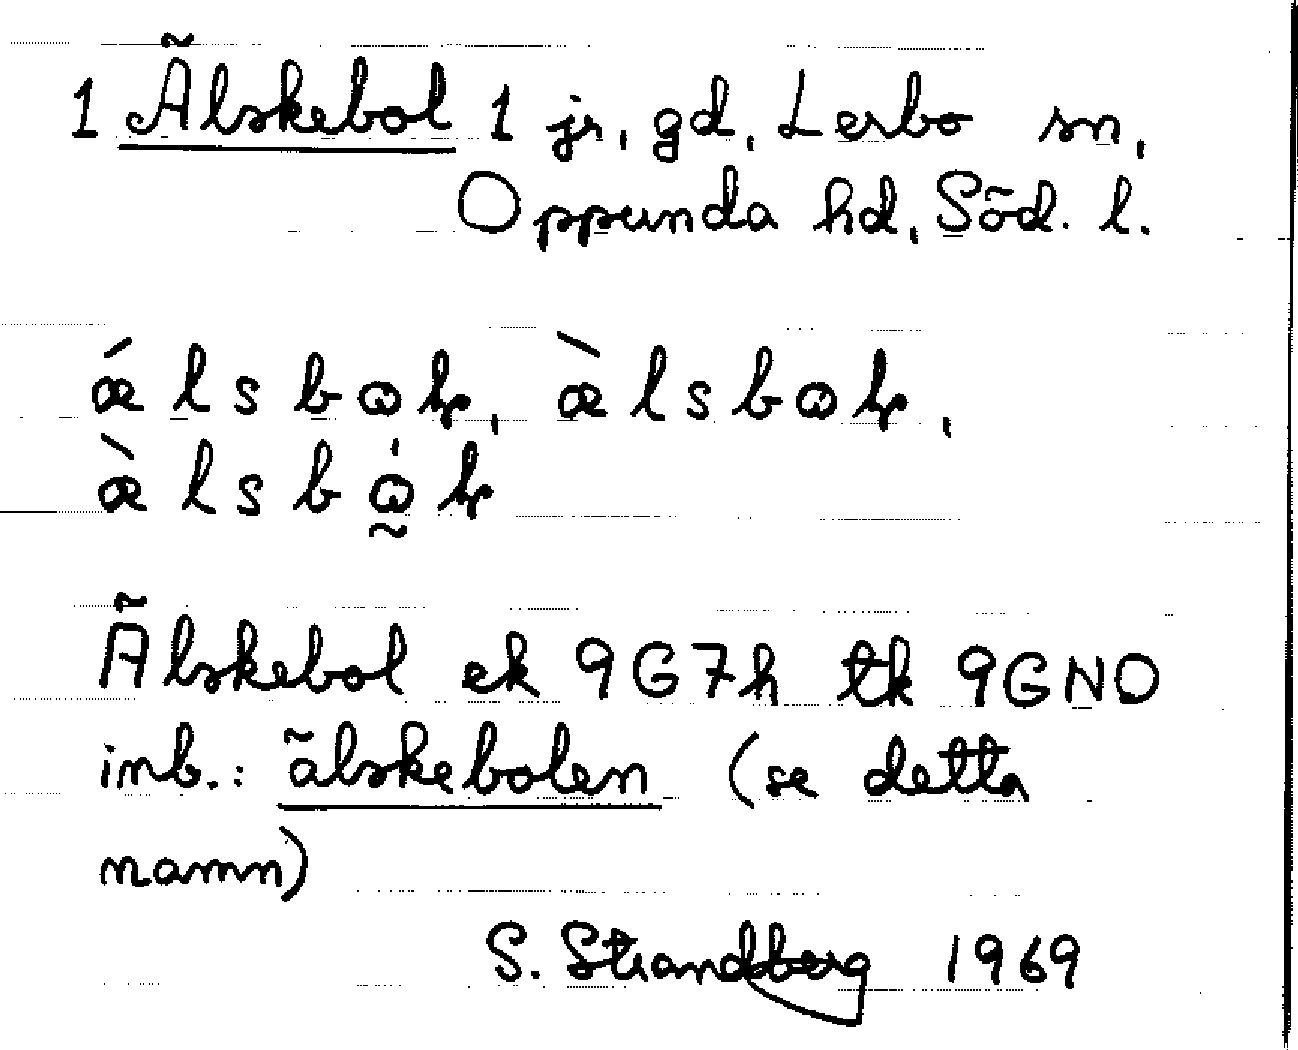 1 Älskebol 1 jr, gd, Lerbo sn,
Oppunda hd, Söd. l.
ǽlsbωł, æ̀lsbωł,
æ̀lsbω̰̍ł
Älskebol ek 9G7h tk 9GNO
inb.: älskebolen (se detta
namn)
S. Strandberg 1969